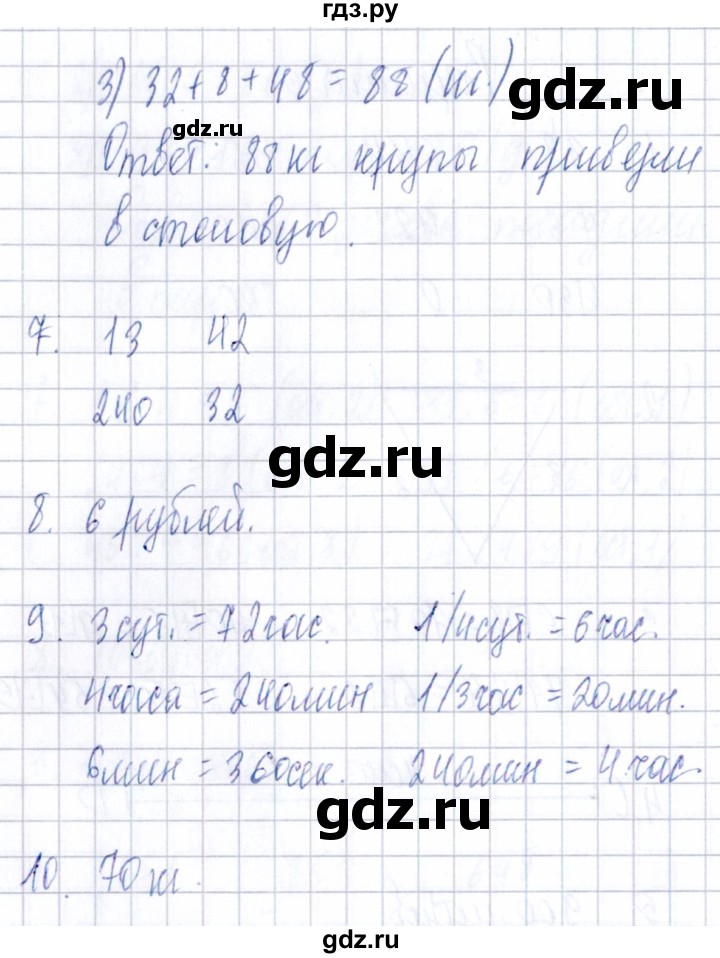 гдз.ру
3) 32+8+48=88 (кг.)
gdz.ru
gdz.ru
Ответ: 88 кг крупы привезли
в столовую.
7. 13 42
240 32
gdz.ru
8. 6 рублей.
9. 3 сут. = 72 час. 1/4 сут. = 6 час.
4 часа = 240 мин 1/3 час = 20 мин.
6 мин = 360 сек. 240 мин = 4 час.
gdz.ru
10. 70 кг.
gdz.ru